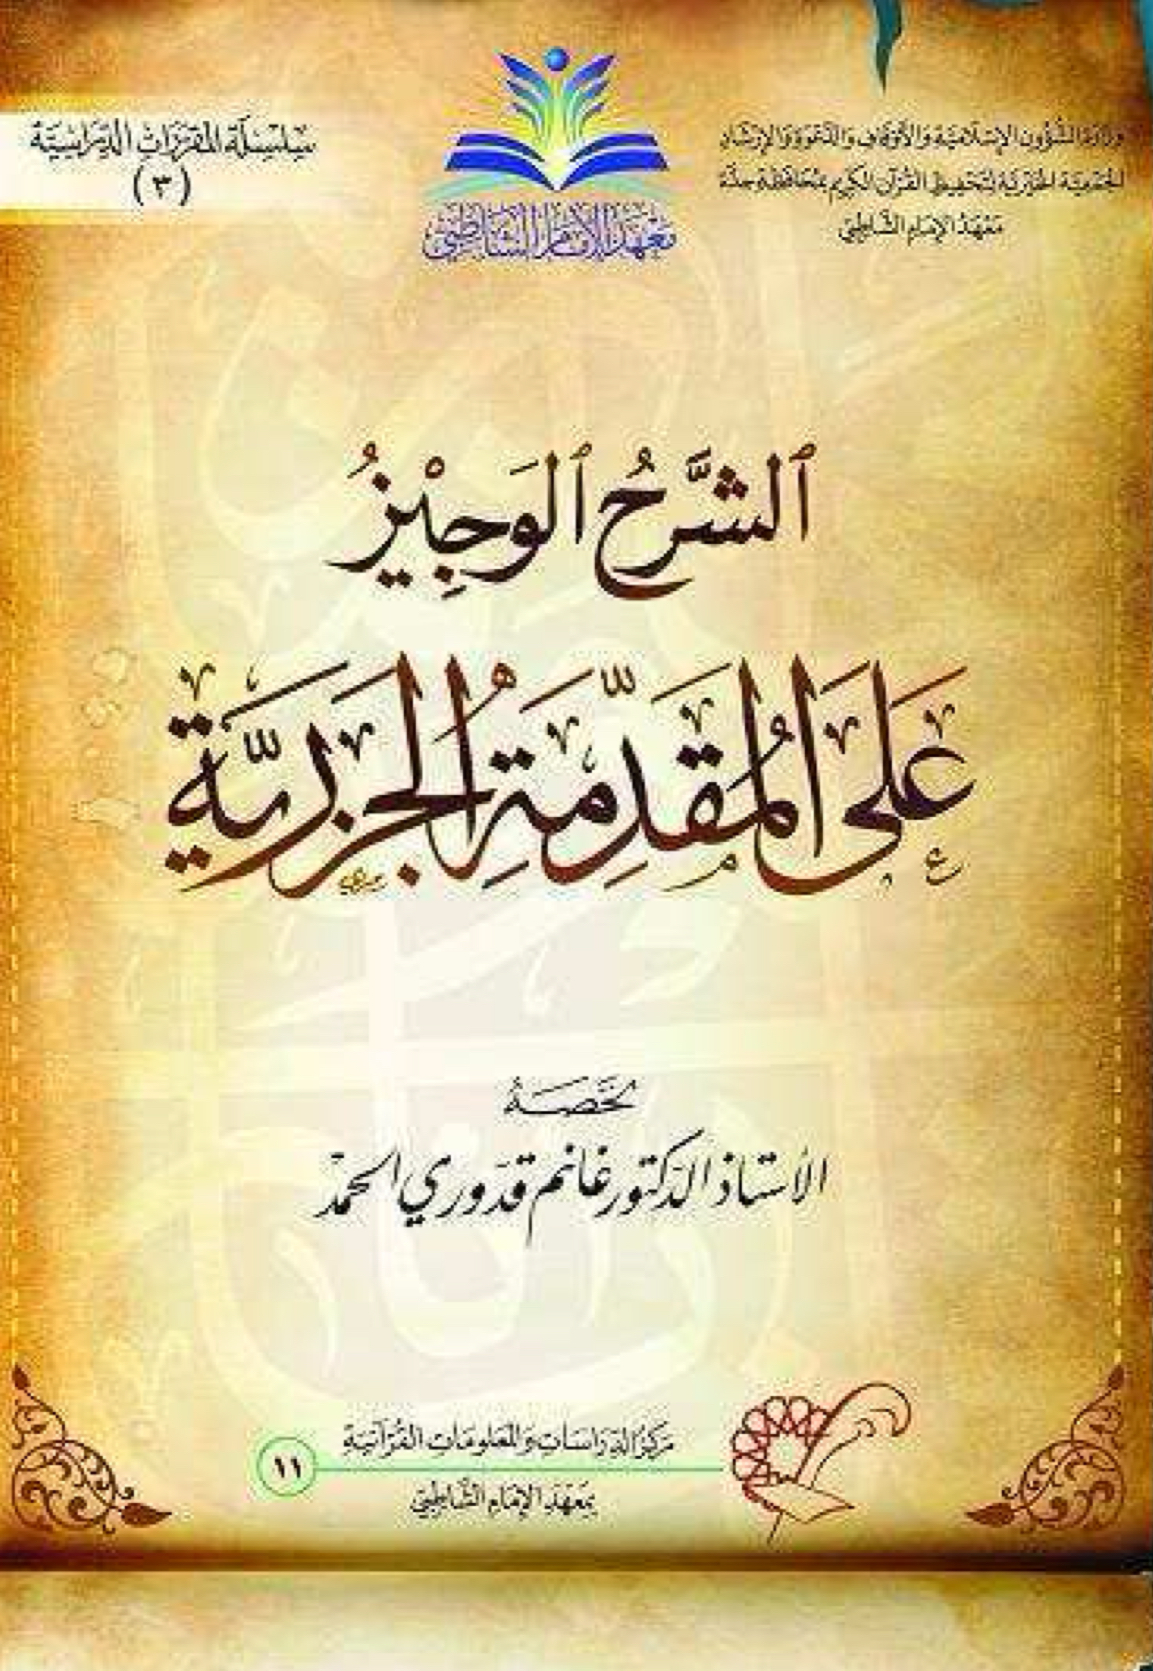 وزارة الشؤون الإسلامية والأوقاف والدعوة والإرشاد
الجمعية الخيرية لتحفيظ القرآن الكريم بمحافظة جدة
معهد الإمام الشاطبي
معهد الإمام الشاطبي
سلسلة المقررات الدراسية
(٣)
ٱلشَّرْحُ ٱلوَجِيْزُ
عَلَى المُقَدِّمَةِ الجَزَرِيَّةِ
لخَّصَهُ
الأستاذ الدكتور غانم قدوري الحمد
مركز الدراسات والمعلومات القرآنية
١١
بمعهد الإمام الشاطبي